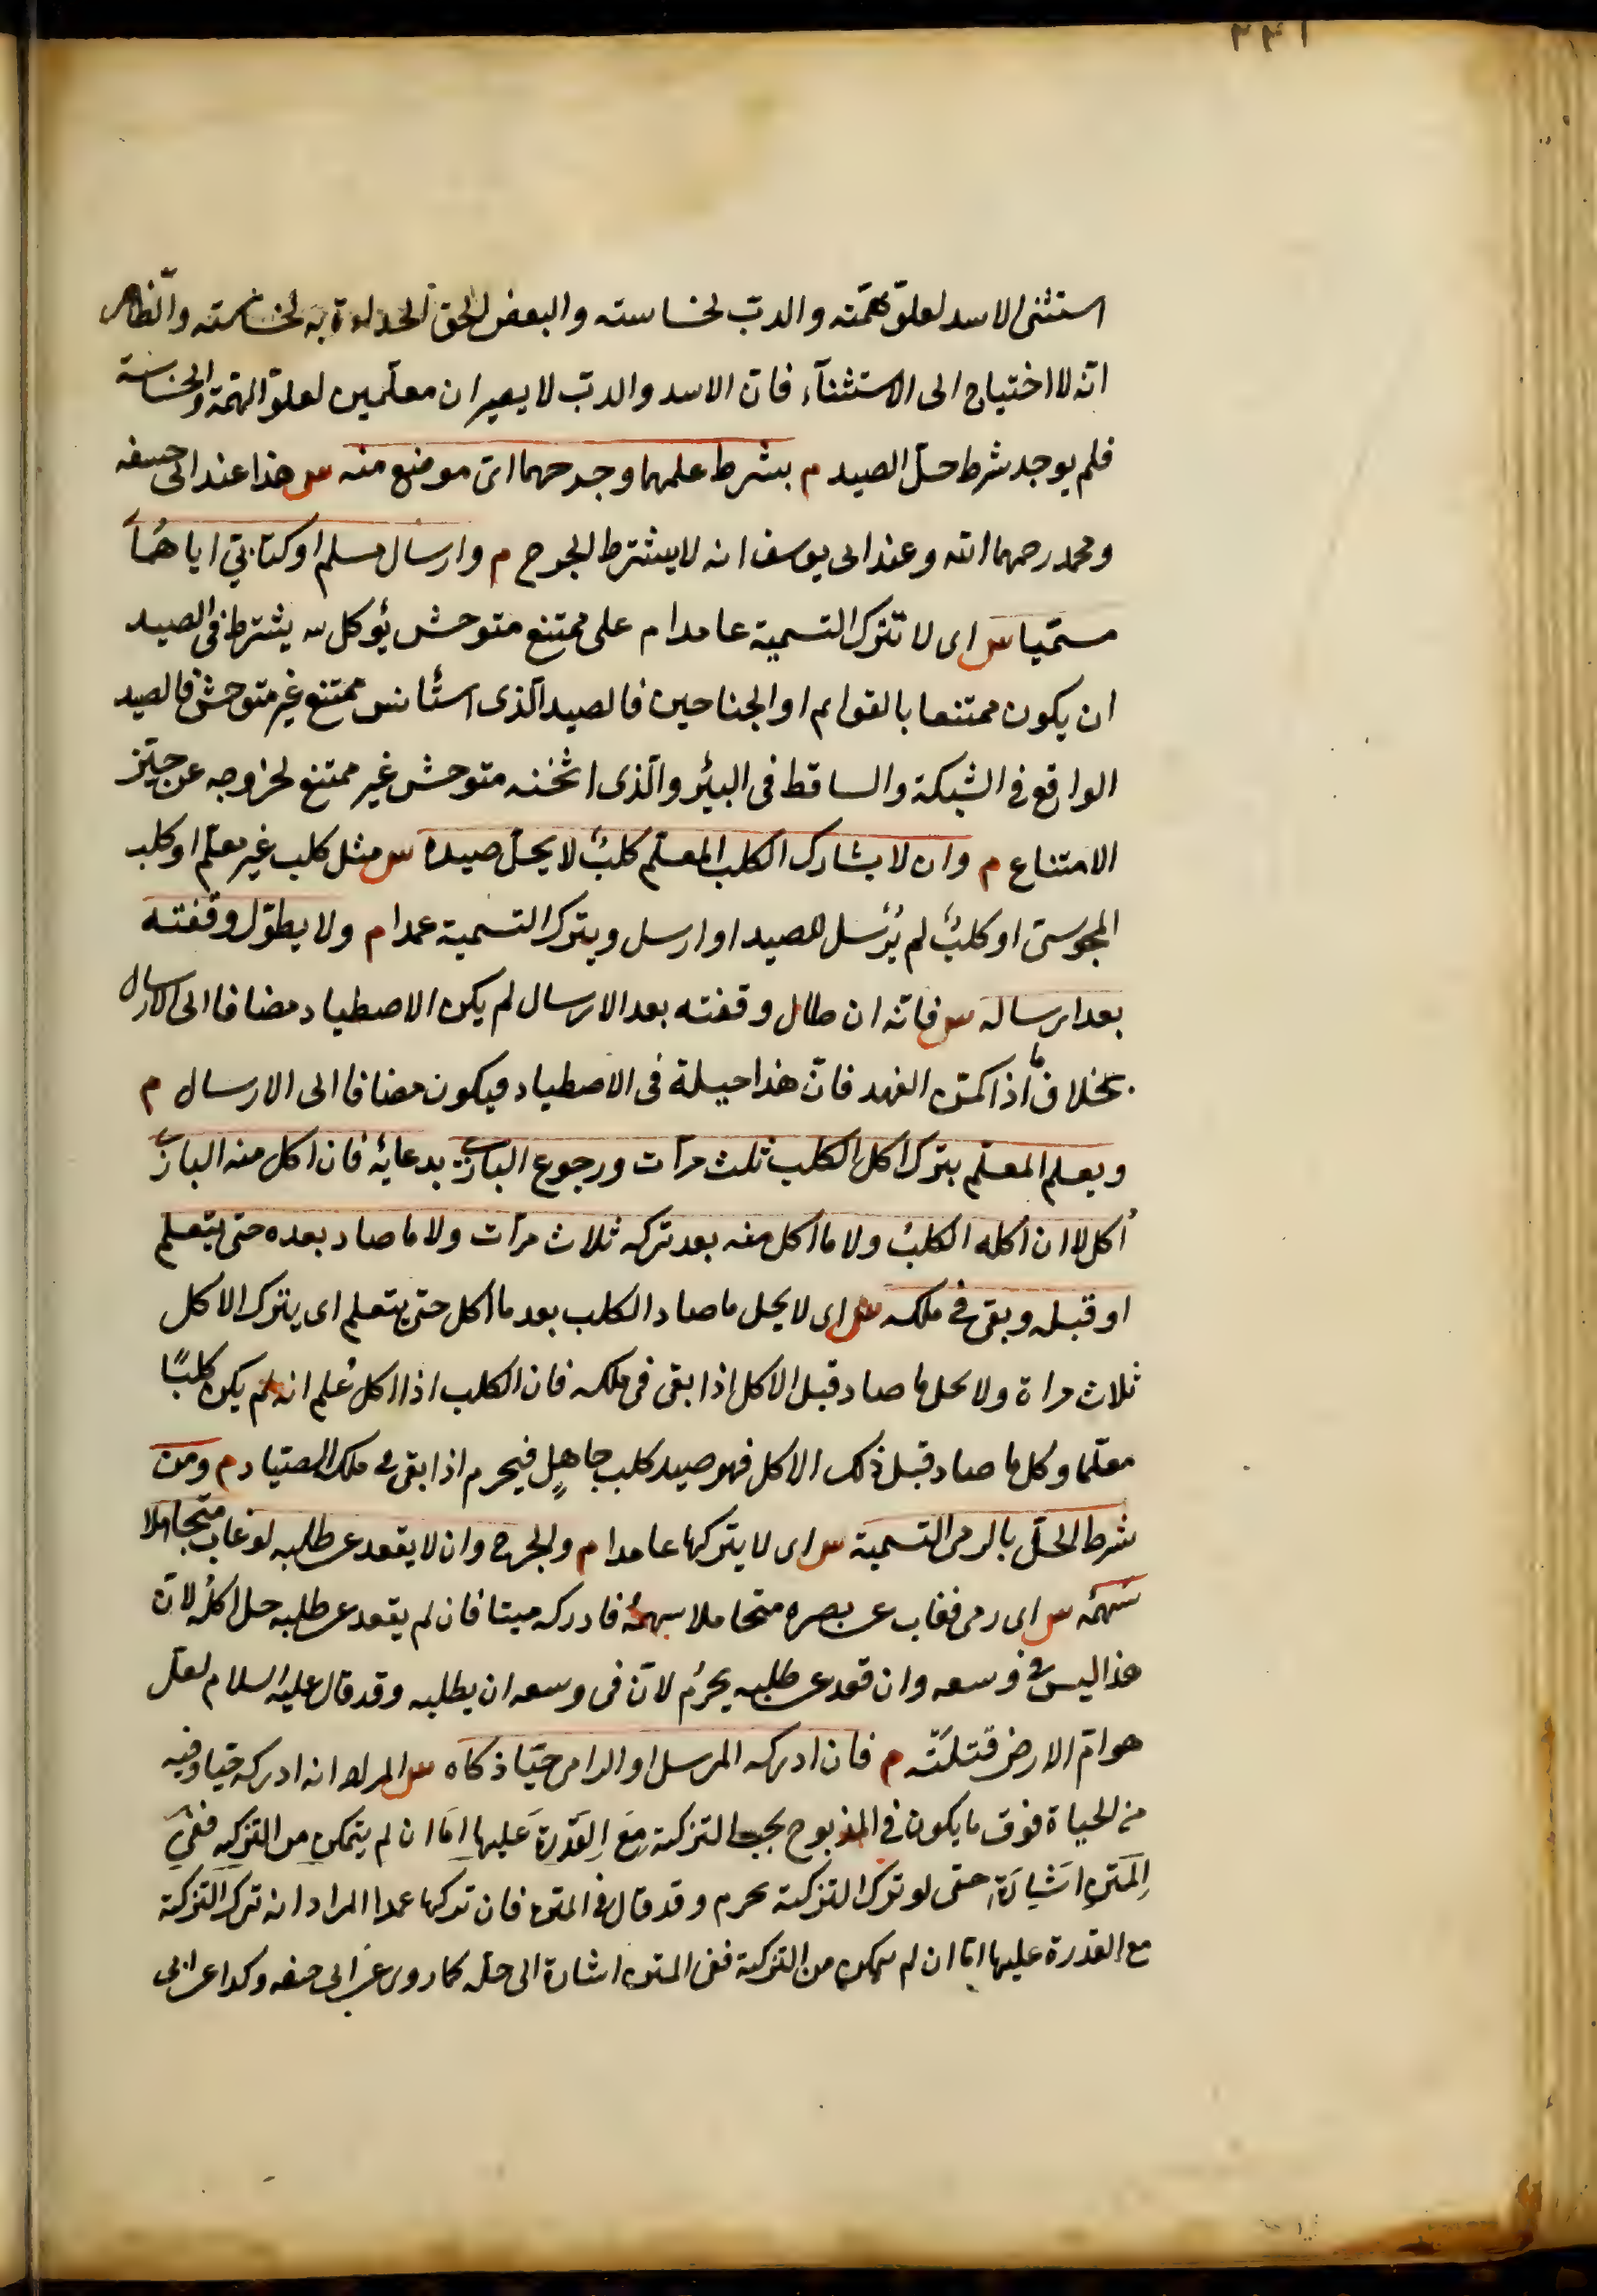 ٣٤١
استثنى الاسد لعلوّ همّته والدبّ لخساسته والبعض الحق الحدأة به لخساسته والظاهر
انّه لا اختياج الى الاستثناء فانّ الاسد والدبّ لا يصيران معلّمين لعلوّ الهمّة والخساسة
فلم يوجد شرط حلّ الصيد م بشرط علمهما وجرحهما اىّ موضع منه س هذا عند ابى حنيفه
ومحمد رحمهما الله وعند ابى يوسف انه لا يشترط الجرح م وارسال مسلم او كتابىّ اياهما
مسمّيا س اى لا تترك التسمية عامدا م على ممتنع متوحش يؤكل س يشترط فى الصيد
ان يكون ممتنعا بالقوايم او الجناحين فالصيد الّذى استأنس ممتنع غير متوحش فالصيد
الواقع فى الشبكة والساقط فى البئر والّذى اثخنه متوحش غير ممتنع لخروجه عن حيّز
الامتناع م وان لا يشارك الكلب المعلّم كلبٌ لا يحلّ صيده س مثل كلب غير معلّم او كلب
المجوسىّ او كلبٌ لم يُرسل للصيد او ارسل ويترك التسمية عمدا م ولا يطوّل وقفته
بعد ارساله س فانّه ان طال وقفته بعد الارسال لم يكن الاصطياد مضافا الى الارسال
بخلاف ما اذا كمّن الفهد فانّ هذا حيلة فى الاصطياد فيكون مضافا الى الارسال م
ويعلم المعلّم بترك اكل الكلب ثلث مرّات ورجوع البازى بدعائه فان اكل منه البازى
اُكل لا ان اكله الكلبُ ولا ما اكل منه بعد تركه ثلاث مرّات ولا ما صاد بعده حتى يتعلم
او قبله وبقى فى ملكه س اى لا يحل ما صاد الكلب بعد ما اكل حتى يتعلم اى يترك الاكل
ثلاث مراة ولا يحل ما صاد قبل الاكل اذا بقى فى ملكه فان الكلب اذا اكل عُلم انه لم يكن كلبًا
معلّما وكل ما صاد قبل ذلك الاكل فهو صيد كلب جاهلٍ فيحرم اذا بقى فى ملك الصيّاد م ومن
شرط الحلّ بالرمى التسمية س اى لا يتركها عامدا م والجرح وان لا يقعد عن طلبه لو غاب متحاملا
سهمُه س اى رمى فغاب عن بصره متحاملا سهمُه فادركه ميتا فان لم يقعد عن طلبه حل اكلُه لانّ
هذا ليس فى وسعه وان قعد عن طلبه يحرُم لانّ فى وسعه ان يطلبه وقد قال عليه السلام لعلّ
هوامّ الارض قتلَتْه م فان ادركه المرسل او الرامى حيّا ذكاه س المراد انه ادركه حيا وفيه
من الحياة فوق ما يكون فى المذبوح يجب التزكية مع القدرة عليها امّا ان لم يتمكن من التزكيه ففى
المتن اشارة حتى لو ترك التزكية يحرم وقد قال فى المتن فان تركها عمدا المراد انه ترك التزكية
مع القدرة عليها امّا ان لم يتمكن من التزكية ففى المتن اشارة الى حلّه كما روى عن ابى حنيفه وكذا عن ابى